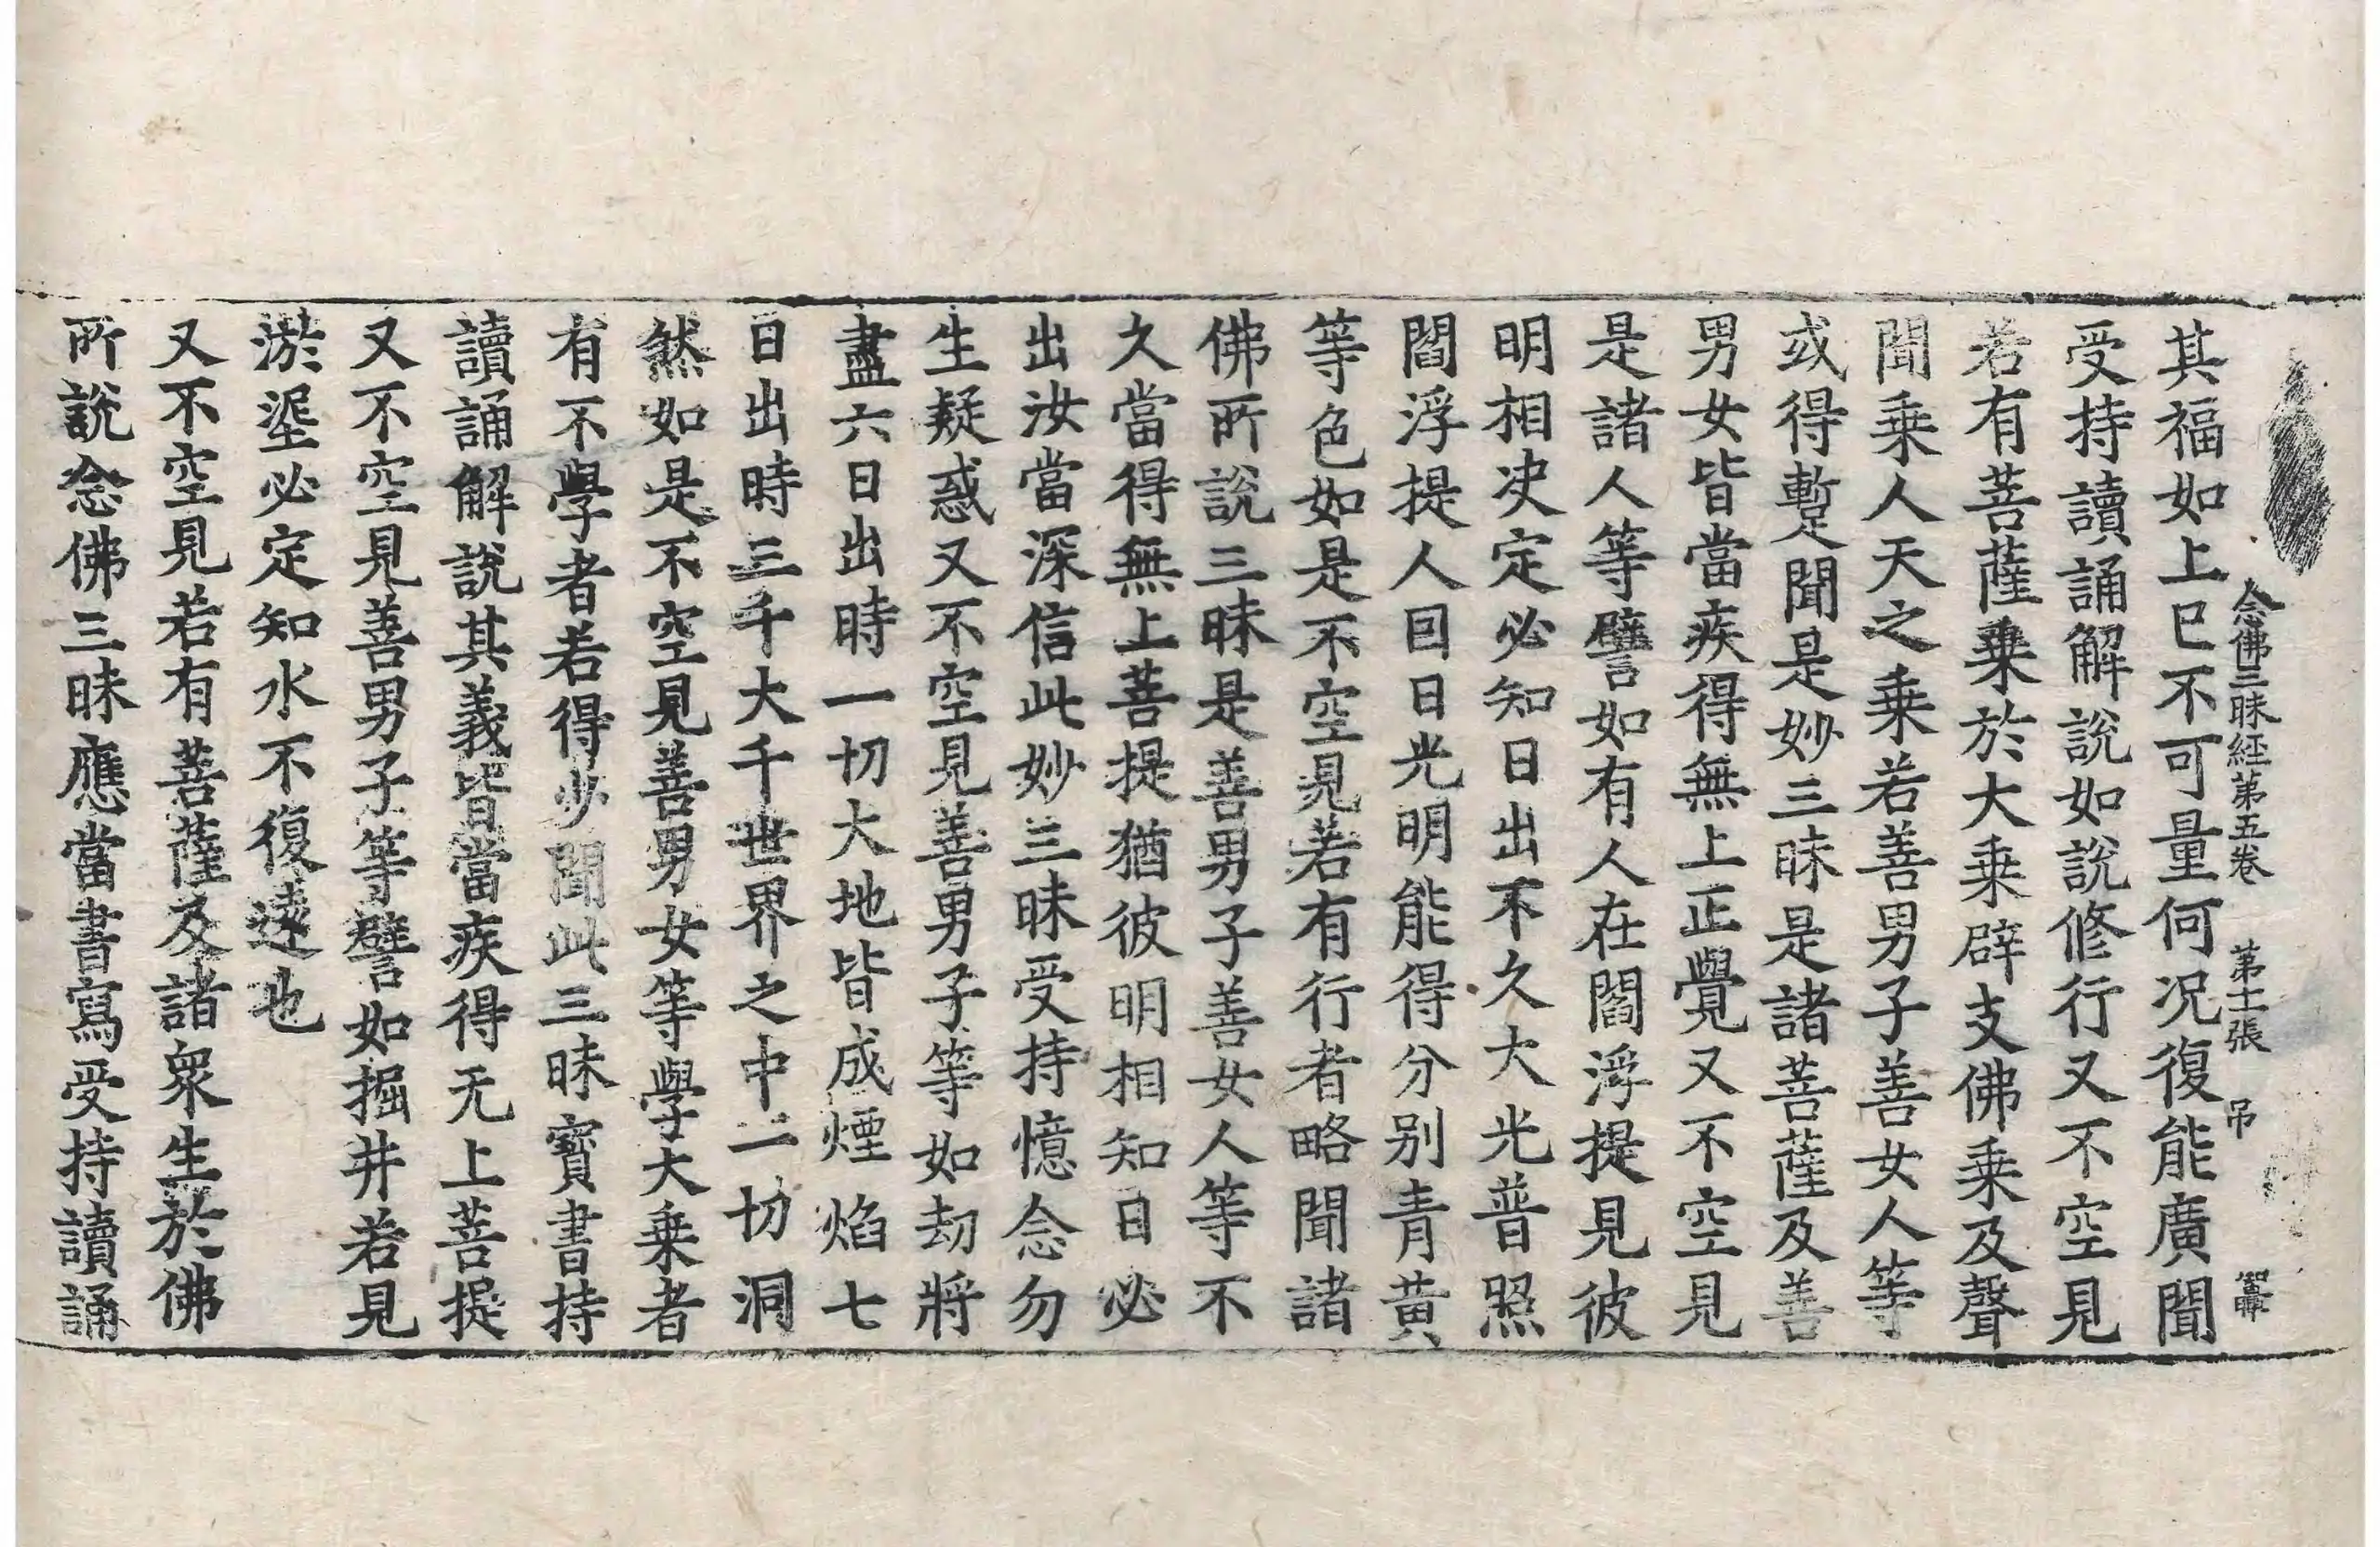 念佛三昧經第五卷 第十二張 吊
其福如上已不可量何况復能廣聞
受持讀誦解說如說修行又不空見
若有菩薩乗於大乗辟支佛乗及聲
聞乗人天之乗若善男子善女人等
或得暫聞是妙三昧是諸菩薩及善
男女皆當疾得無上正覺又不空見
是諸人等譬如有人在閻浮提見彼
明相决定必知日出不久大光普照
閻浮提人因日光明能得分别青黄
等色如是不空見若有行者略聞諸
佛所說三昧是善男子善女人等不
久當得無上菩提猶彼明相知日必
出汝當深信此妙三昧受持憶念勿
生疑惑又不空見善男子等如劫將
盡六日出時一切大地皆成煙焰七
日出時三千大千世界之中一切洞
然如是不空見善男女等學大乗者
有不學者若得少聞此三昧寳書持
讀誦解說其義皆當疾得无上菩提
又不空見善男子等譬如掘井若見
淤埿必定知水不復遠也
又不空見若有菩薩及諸衆生於佛
所說念佛三昧應當書寫受持讀誦